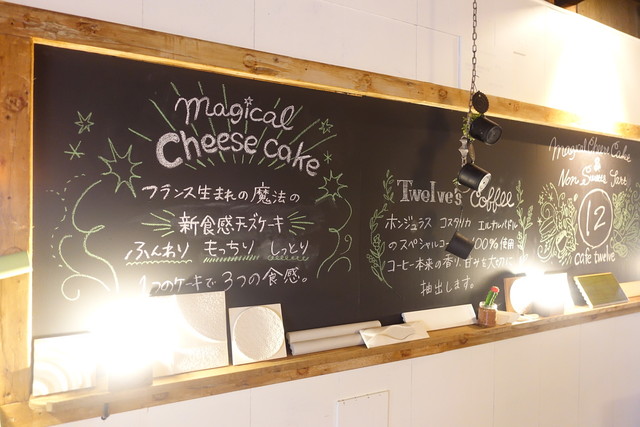 Magical
Cheese cake
フランス生まれの魔法の
新食感チーズケーキ
ふんわり もっちり しっとり
1つのケーキで3つの食感。
Twelve's Coffee
ホンジュラス コスタリカ エルサルバドル
のスペシャルコー 100%使用
コーヒー本来の香り、甘みを大切に
抽出します。
Magical Cheese Cake
&
Non Sweets Tart
12
cafe twelve